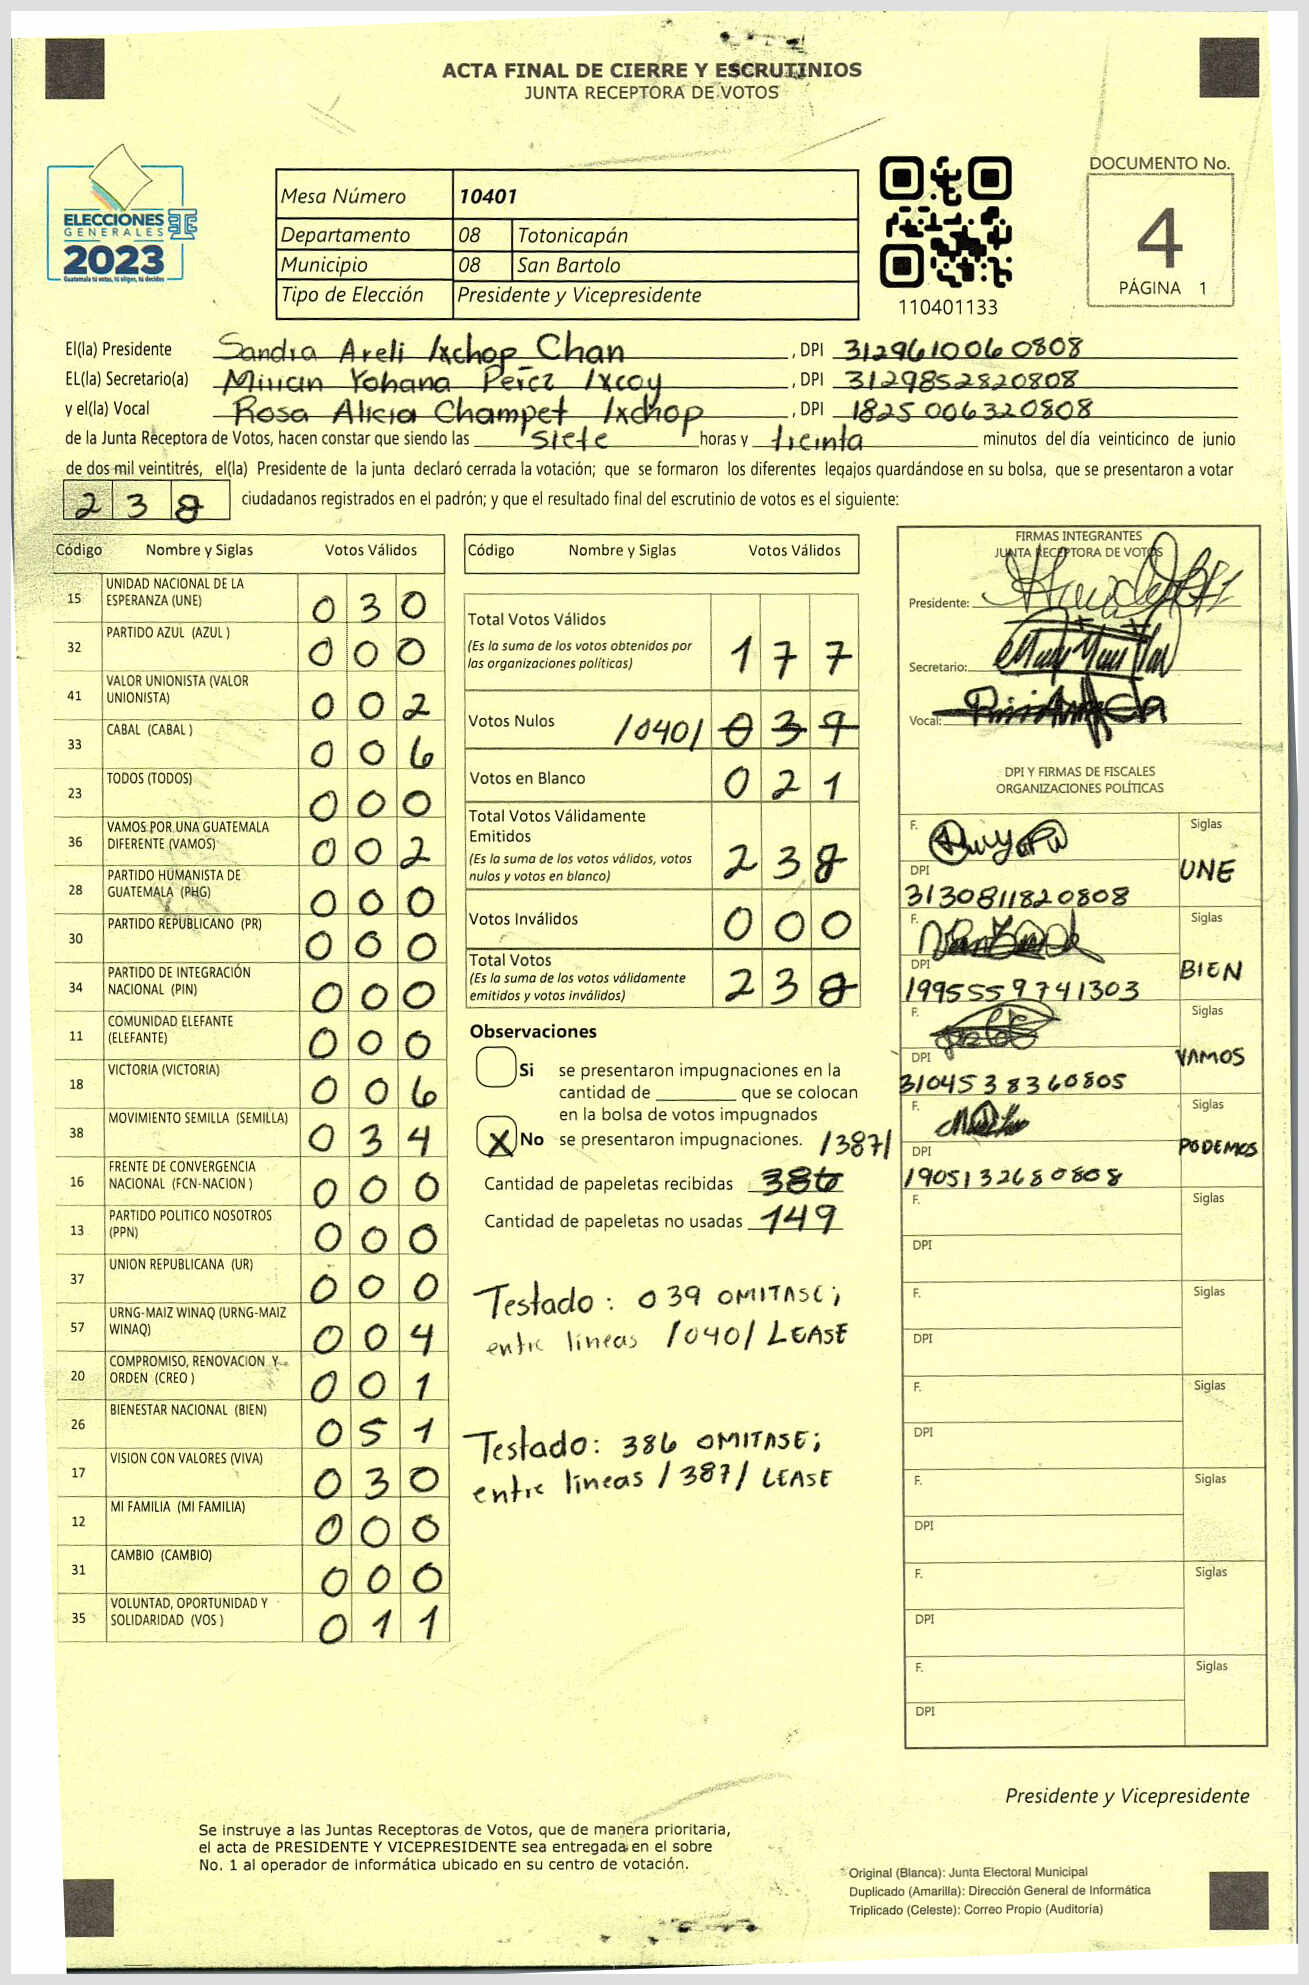 ACTA FINAL DE CIERRE Y ESCRUTINIOS
JUNTA RECEPTORA DE VOTOS
ELECCIONES
GENERALES
2023
Guatemala tú votas, tú eliges, tú decides
Mesa Número 10401
Departamento 08 Totonicapán
Municipio 08 San Bartolo
Tipo de Elección Presidente y Vicepresidente
110401133
DOCUMENTO No.
4
PÁGINA 1
El(la) Presidente Sandra Areli Ixchop Chan, DPI 3129610060808
EL(la) Secretario(a) Mirian Yohana Perez Ixcoy, DPI 3129852820808
y el(la) Vocal Rosa Alicia Champet Ixchop, DPI 1825006320808
de la Junta Receptora de Votos, hacen constar que siendo las siete horas y treinta minutos del día veinticinco de junio
de dos mil veintitrés, el(la) Presidente de la junta declaró cerrada la votación; que se formaron los diferentes legajos guardándose en su bolsa, que se presentaron a votar
238 ciudadanos registrados en el padrón; y que el resultado final del escrutinio de votos es el siguiente:
Código Nombre y Siglas Votos Válidos
15 UNIDAD NACIONAL DE LA ESPERANZA (UNE) 030
32 PARTIDO AZUL (AZUL ) 000
41 VALOR UNIONISTA (VALOR UNIONISTA) 002
33 CABAL (CABAL ) 006
23 TODOS (TODOS) 000
36 VAMOS POR UNA GUATEMALA DIFERENTE (VAMOS) 002
28 PARTIDO HUMANISTA DE GUATEMALA (PHG) 000
30 PARTIDO REPUBLICANO (PR) 000
34 PARTIDO DE INTEGRACIÓN NACIONAL (PIN) 000
11 COMUNIDAD ELEFANTE (ELEFANTE) 000
18 VICTORIA (VICTORIA) 006
38 MOVIMIENTO SEMILLA (SEMILLA) 034
16 FRENTE DE CONVERGENCIA NACIONAL (FCN-NACION ) 000
13 PARTIDO POLITICO NOSOTROS (PPN) 000
37 UNION REPUBLICANA (UR) 000
57 URNG-MAIZ WINAQ (URNG-MAIZ WINAQ) 004
20 COMPROMISO, RENOVACION Y ORDEN (CREO ) 001
26 BIENESTAR NACIONAL (BIEN) 051
17 VISION CON VALORES (VIVA) 030
12 MI FAMILIA (MI FAMILIA) 000
31 CAMBIO (CAMBIO) 000
35 VOLUNTAD, OPORTUNIDAD Y SOLIDARIDAD (VOS ) 011
Código Nombre y Siglas Votos Válidos
Total Votos Válidos 177
(Es la suma de los votos obtenidos por
las organizaciones políticas)
Votos Nulos /040/ 039
Votos en Blanco 021
Total Votos Válidamente
Emitidos 238
(Es la suma de los votos válidos, votos
nulos y votos en blanco)
Votos Inválidos 000
Total Votos 238
(Es la suma de los votos válidamente
emitidos y votos inválidos)
Observaciones
Si se presentaron impugnaciones en la
cantidad de ________ que se colocan
en la bolsa de votos impugnados
X No se presentaron impugnaciones. /387/
Cantidad de papeletas recibidas 386
Cantidad de papeletas no usadas 149
Testado: 039 OMITASE;
entre líneas /040/ LEASE
Testado: 386 OMITASE;
entre líneas /387/ LEASE
FIRMAS INTEGRANTES
JUNTA RECEPTORA DE VOTOS
Presidente:
Secretario:
Vocal:
DPI Y FIRMAS DE FISCALES
ORGANIZACIONES POLÍTICAS
F. Siglas
DPI UNE
3130811820808
F. Siglas
DPI BIEN
1995559741303
F. Siglas
DPI VAMOS
3104538360805
F. Siglas
DPI PODEMOS
1905132680808
F. Siglas
DPI
F. Siglas
DPI
F. Siglas
DPI
F. Siglas
DPI
F. Siglas
DPI
F. Siglas
DPI
Presidente y Vicepresidente
Se instruye a las Juntas Receptoras de Votos, que de manera prioritaria,
el acta de PRESIDENTE Y VICEPRESIDENTE sea entregada en el sobre
No. 1 al operador de informática ubicado en su centro de votación.
Original (Blanca): Junta Electoral Municipal
Duplicado (Amarilla): Dirección General de Informática
Triplicado (Celeste): Correo Propio (Auditoría)